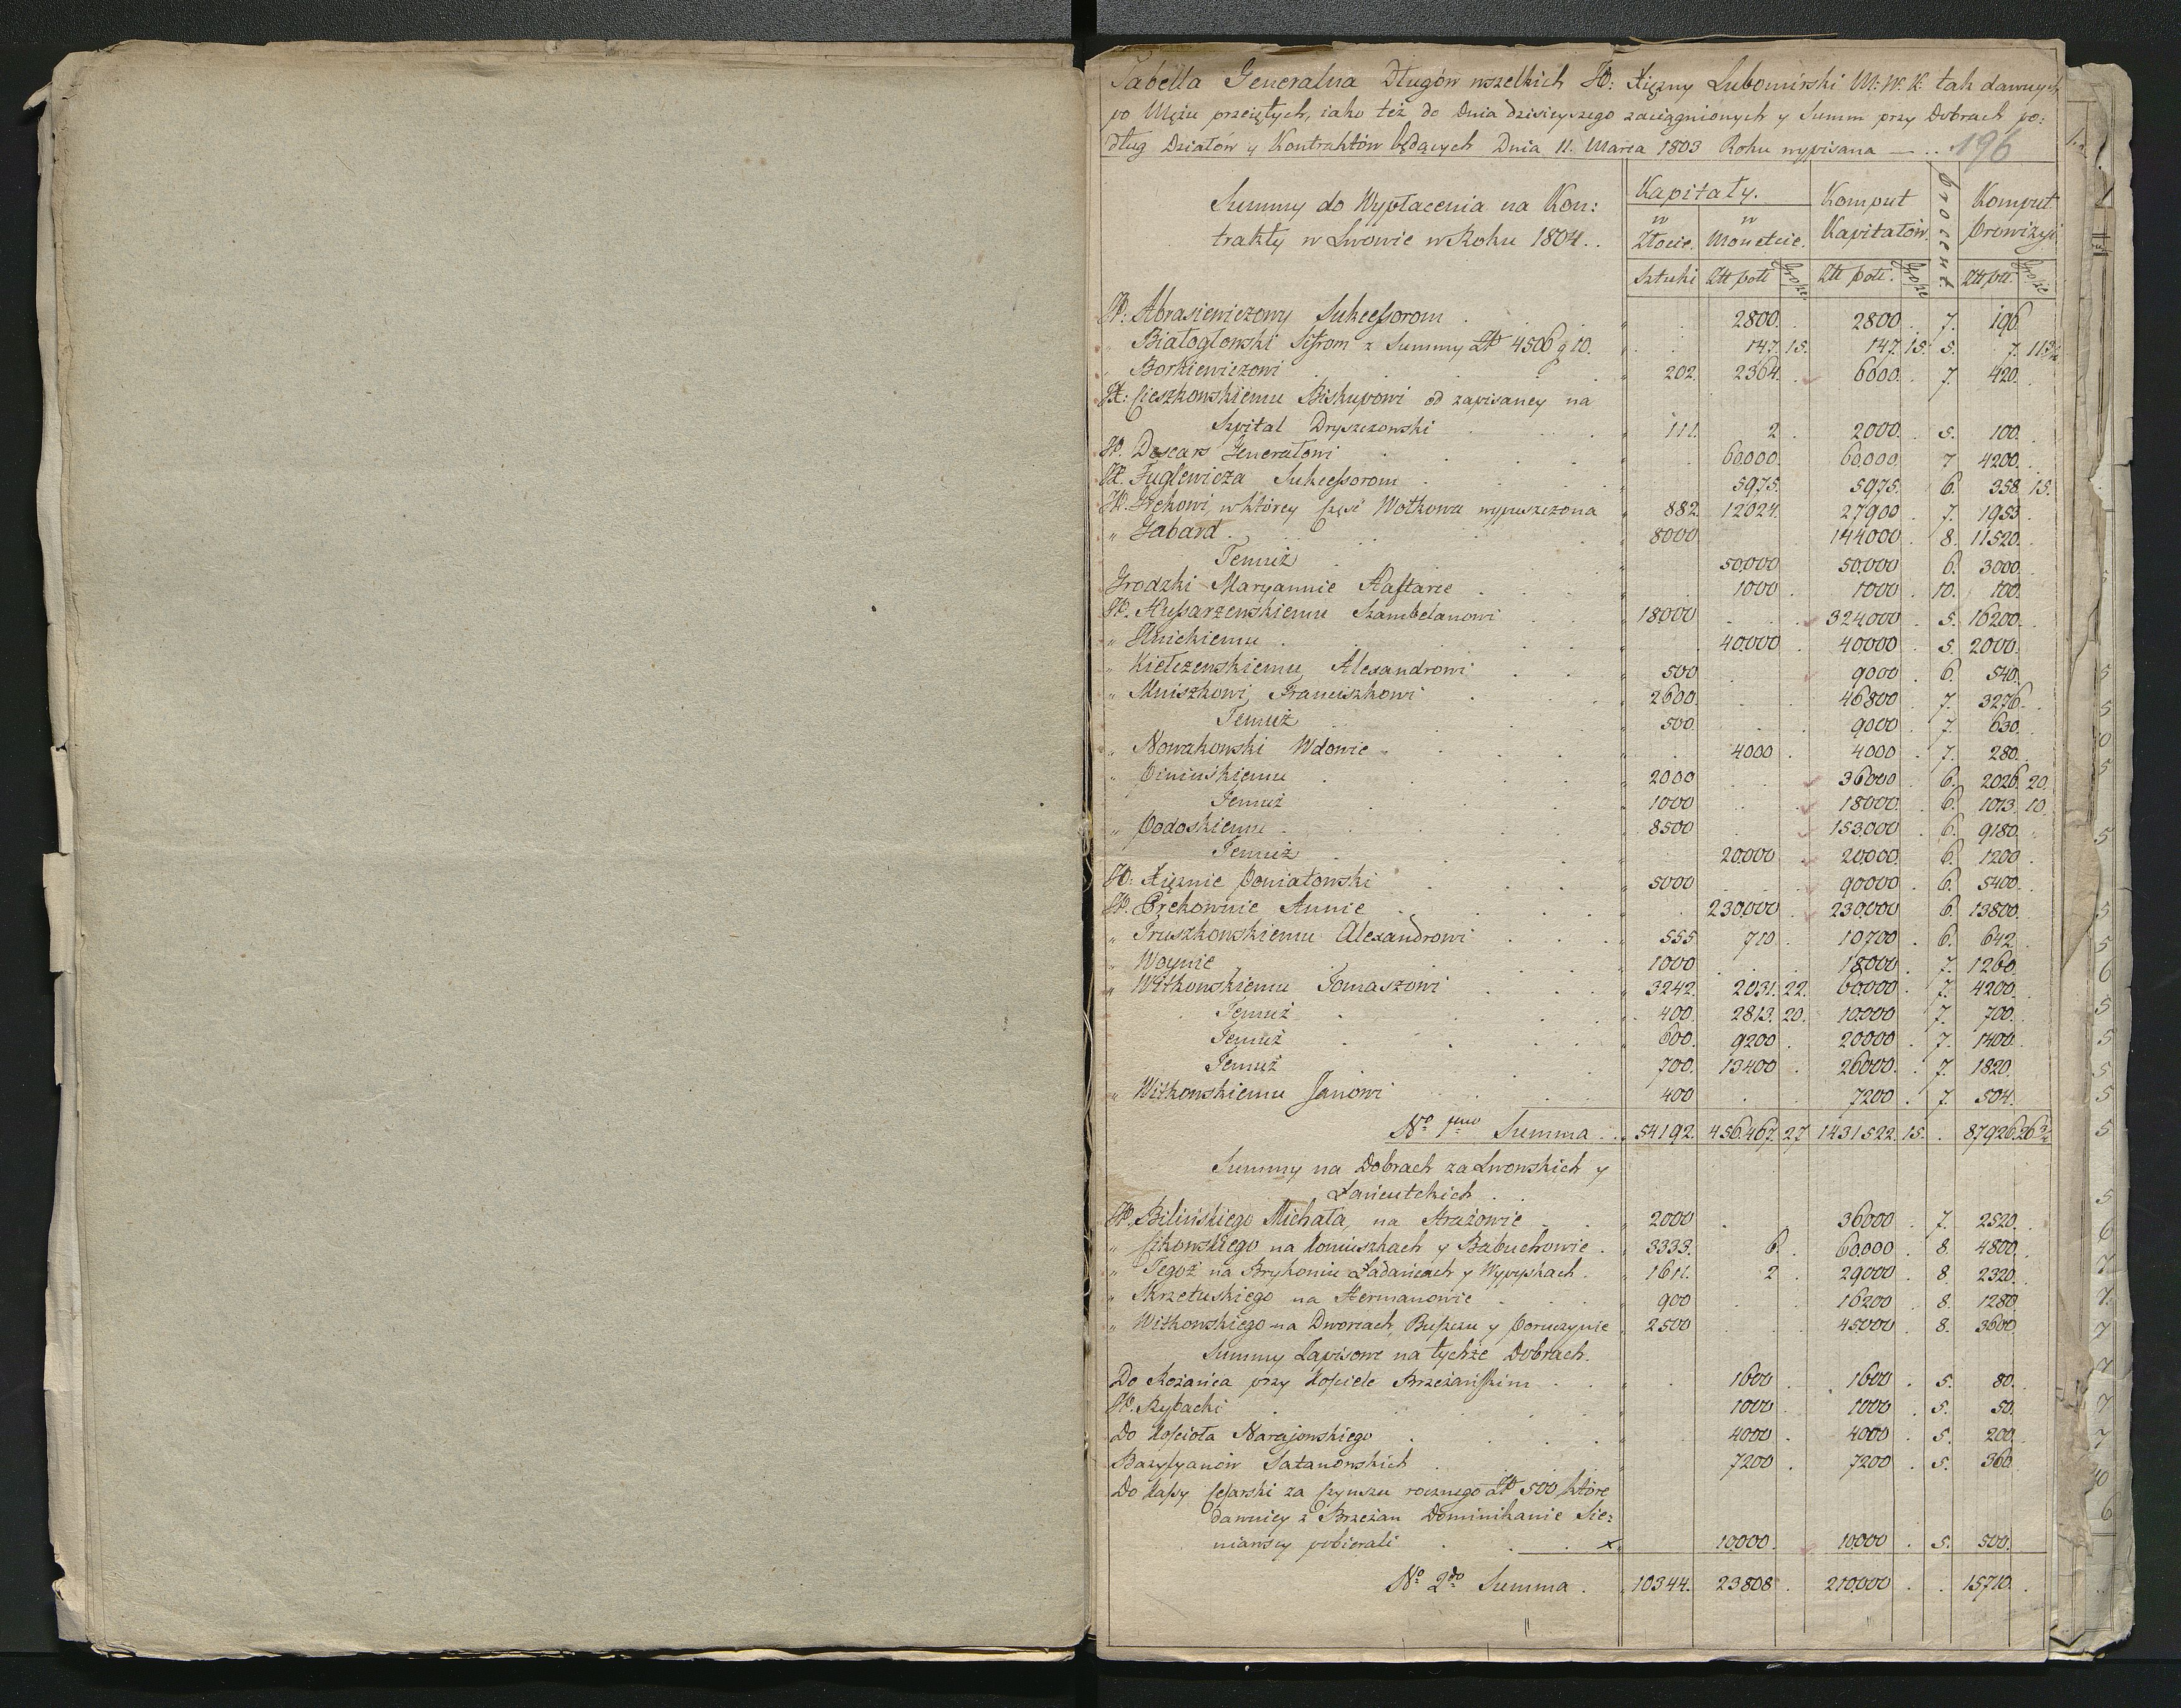 Tabella Generalna Długów wszelkich JO: Xiężny Lubomirski M: W: K: tak dawnych
po Mężu przeiętych, iako też do Dnia dzisieyszego zaciągnionych y Summ przy Dobrach po:
dług Działów y Kontraktów będących Dnia 11. Marca 1803 Roku wypisana — .. 196
Summy do Wypłacenia na Kon:
trakty w Lwowie w Roku 1804 ..
Kapitały. Komput Kapitałów. Procent Komput Prowizyi
w Złocie. w Monetcie.
Sztuki Złł poll Grosze Złł poll. Grosze Złł pll. Grosze
W: Abrasiewiczowy Sukcessorom . 2800. 2800. 7. 196
" Białogłowski Sistrom z Summy Złł 4506 g 10. 147. 15. 147. 15. 5. 7. 11 1/4
" Borkiewiczowi 202. 2364. 6000. 7. 420.
JX: Cieszkowskiemu Biskupowi od zapisaney na
Szpital Dryszczowski 111. 2 2000. 5. 100.
W. Descars Generałowi 60000. 60000 7 4200.
JX. Fuglewicza Sukcessorom 5975. 5975. 6. 358. 15.
W. Grekowi, w którey część Wołkowa wypuszczona 882. 12024. 27900 7. 1953
" Gabard . 8000 144000 8. 11520.
Temuż 50000 50.000 6. 3000.
Grodzki Maryannie Haftarce 1000 1000 10. 100.
W. Hussarzewskiemu Szambelanowi 18000 324000 5. 16200.
" Ilnickiemu . 40.000 40000 5. 2000.
" Kiełczewskiemu Alexandrowi 500 9000 6. 540.
" Mniszkowi Franciszkowi 2600. 46800 7. 3276.
Temuż 500 9000 7. 630.
" Nowakowski Wdowie 4000 4000 7. 280.
" Pinińskiemu 2000 36000 6. 2026. 20.
Temuż 1000 18000. 6. 1013. 10.
" Podoskiemu 8500 153.000 6. 9180.
Temuż 20.000 20000. 6. 1200
JO: Xiężnie Poniatowski 5000 90000 6. 5400.
W. Prekownie Annie 230.000 230.000 6. 13800.
" Pruszkowskiemu Alexandrowi 555 710 10700 6. 642
" Woynie 1000 18000 7. 1260.
" Witkowskiemu Tomaszowi 3242. 2031. 22. 60.000 7. 4200.
Temuż 400. 2813. 20. 10.000 7. 700.
Temuż 600. 9200 20000 7. 1400.
Temuż 700. 13400 26000. 7. 1820.
" Witkowskiemu Janowi 400 7200 7. 504.
No. 1mo Summa .. 54192. 456.467. 27 1431522. 15. . 87926. 26 3/4
Summy na Dobrach za Lwowskich y
Łańcutckich .
W. Bilińskiego Michała, na Strażowie 2000 36000 7. 2520.
" Cikowskiego na Koniuszkach y Babuchowie . 3333. 6. 60.000 8. 4800.
" Tegoż na Brykoniu Ładańcach y Wypyskach . 1611. 2 29000 8. 2320.
" Skrzetuskiego na Hermanowie 900 16200 8. 1280
" Witkowskiego na Dworcach, Buszczu y Poruczynie 2500 45000 8. 3600
Summy Zapisowe na tychże Dobrach.
Do Rożańca przy Kościele Brzeżańskim 1600 1600 5. 80.
W. Rybacki 1000 1000 5. 50.
Do Kościoła Narajowskiego 4000 4000 5. 200.
Bazylyanów Satanowskich 7200 7200 5. 360
Do Kassy Cesarski za Czynszu rocznego Złł 500 które
dawniey z Brzeżan Dominikanie Sie:
niawscy pobierali . x 10.000. 10.000 5. 500.
No. 2do Summa . 10344. 23808 210.000 15710.